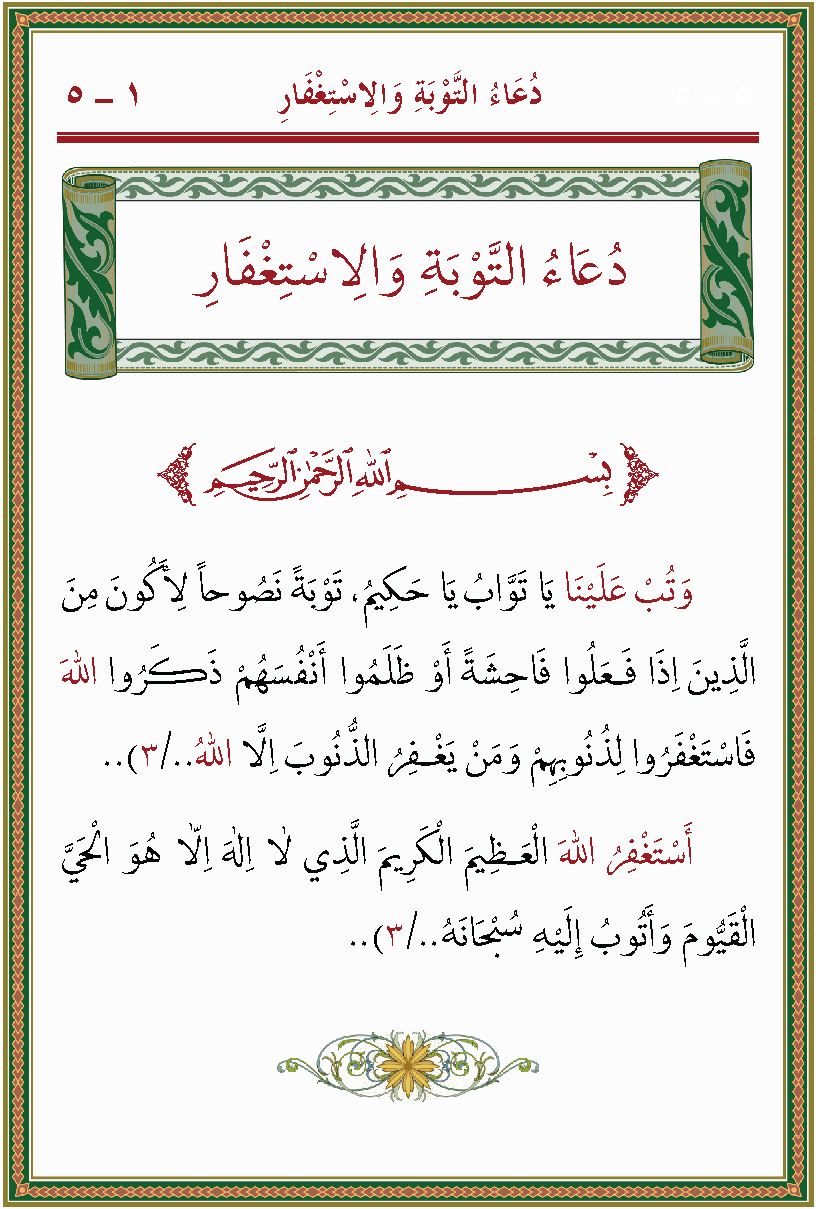 دُعَاءُ التَّوْبَةِ وَالِاسْتِغْفَارِ ١ – ٥
دُعَاءُ التَّوْبَةِ وَالِاسْتِغْفَارِ
بِسْمِ اللهِ الرَّحْمٰنِ الرَّحِيمِ
وَتُبْ عَلَيْنَا يَا تَوَّابُ يَا حَكِيمُ، تَوْبَةً نَصُوحاً لِأَكُونَ مِنَ
الَّذِينَ إِذَا فَعَلُوا فَاحِشَةً أَوْ ظَلَمُوا أَنْفُسَهُمْ ذَكَرُوا اللهَ
فَاسْتَغْفَرُوا لِذُنُوبِهِمْ وَمَنْ يَغْفِرُ الذُّنُوبَ إِلَّا اللهُ../٣)..
أَسْتَغْفِرُ اللهَ الْعَظِيمَ الْكَرِيمَ الَّذِي لَا إِلٰهَ إِلَّا هُوَ الْحَيَّ
الْقَيُّومَ وَأَتُوبُ إِلَيْهِ سُبْحَانَهُ../٣)..